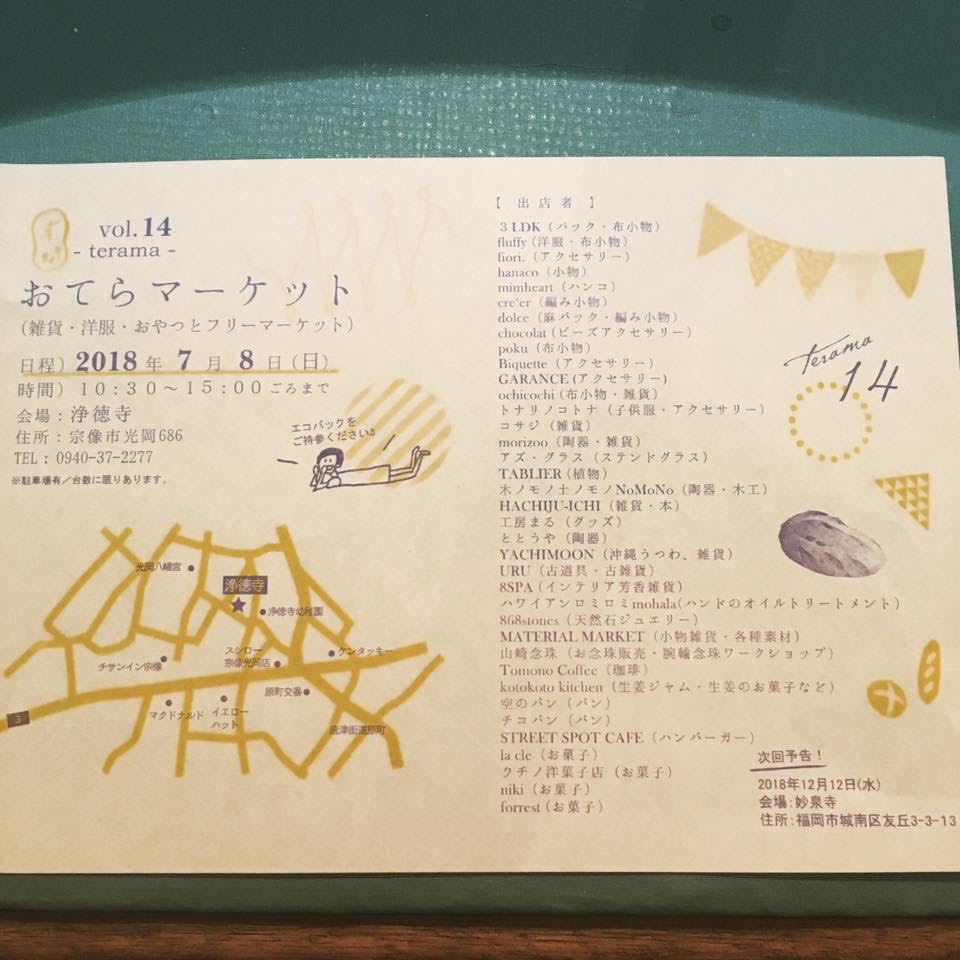 vol.14
- terama -
おてらマーケット
（雑貨・洋服・おやつとフリーマーケット）
日程）2018年 7月 8日（日）
時間）10：30～15：00ごろまで
会場：浄徳寺
住所：宗像市光岡686
TEL：0940-37-2277
※駐車場有/台数に限りあります。
エコバックを
ご持参ください♪
光岡八幡宮
浄徳寺
浄徳寺幼稚園
スシロー
宗像光岡店
ケンタッキー
チサンイン宗像
原町交番
マクドナルド
イエロー
ハット
唐津街道原町
3
【 出 店 者 】
3 LDK（バック・布小物）
fluffy（洋服・布小物）
fiori.（アクセサリー）
hanaco（小物）
mimheart（ハンコ）
cre'er（編み小物）
dolce（麻バック・編み小物）
chocolat（ビーズアクセサリー）
poku（布小物）
Biquette（アクセサリー）
GARANCE（アクセサリー）
ochicochi（布小物・雑貨）
トナリノコトナ（子供服・アクセサリー）
コサジ（雑貨）
morizoo（陶器・雑貨）
アズ・グラス（ステンドグラス）
TABLIER（植物）
木ノモノ土ノモノNoMoNo（陶器・木工）
HACHIJU-ICHI（雑貨・本）
工房まる（グッズ）
ととうや（陶器）
YACHIMOON（沖縄うつわ、雑貨）
URU（古道具・古雑貨）
8SPA（インテリア芳香雑貨）
ハワイアンロミロミmohala(ハンドのオイルトリートメント)
868stones（天然石ジュエリー）
MATERIAL MARKET（小物雑貨・各種素材）
山崎念珠（お念珠販売・腕輪念珠ワークショップ）
Tomono Coffee（珈琲）
kotokoto kitchen（生姜ジャム・生姜のお菓子など）
空のパン（パン）
チコパン（パン）
STREET SPOT CAFE（ハンバーガー）
la cle（お菓子）
ウチノ洋菓子店（お菓子）
niki（お菓子）
forrest（お菓子）
terama
14
次回予告！
2018年12月12日(水)
会場：妙泉寺
住所：福岡市城南区友丘3-3-13